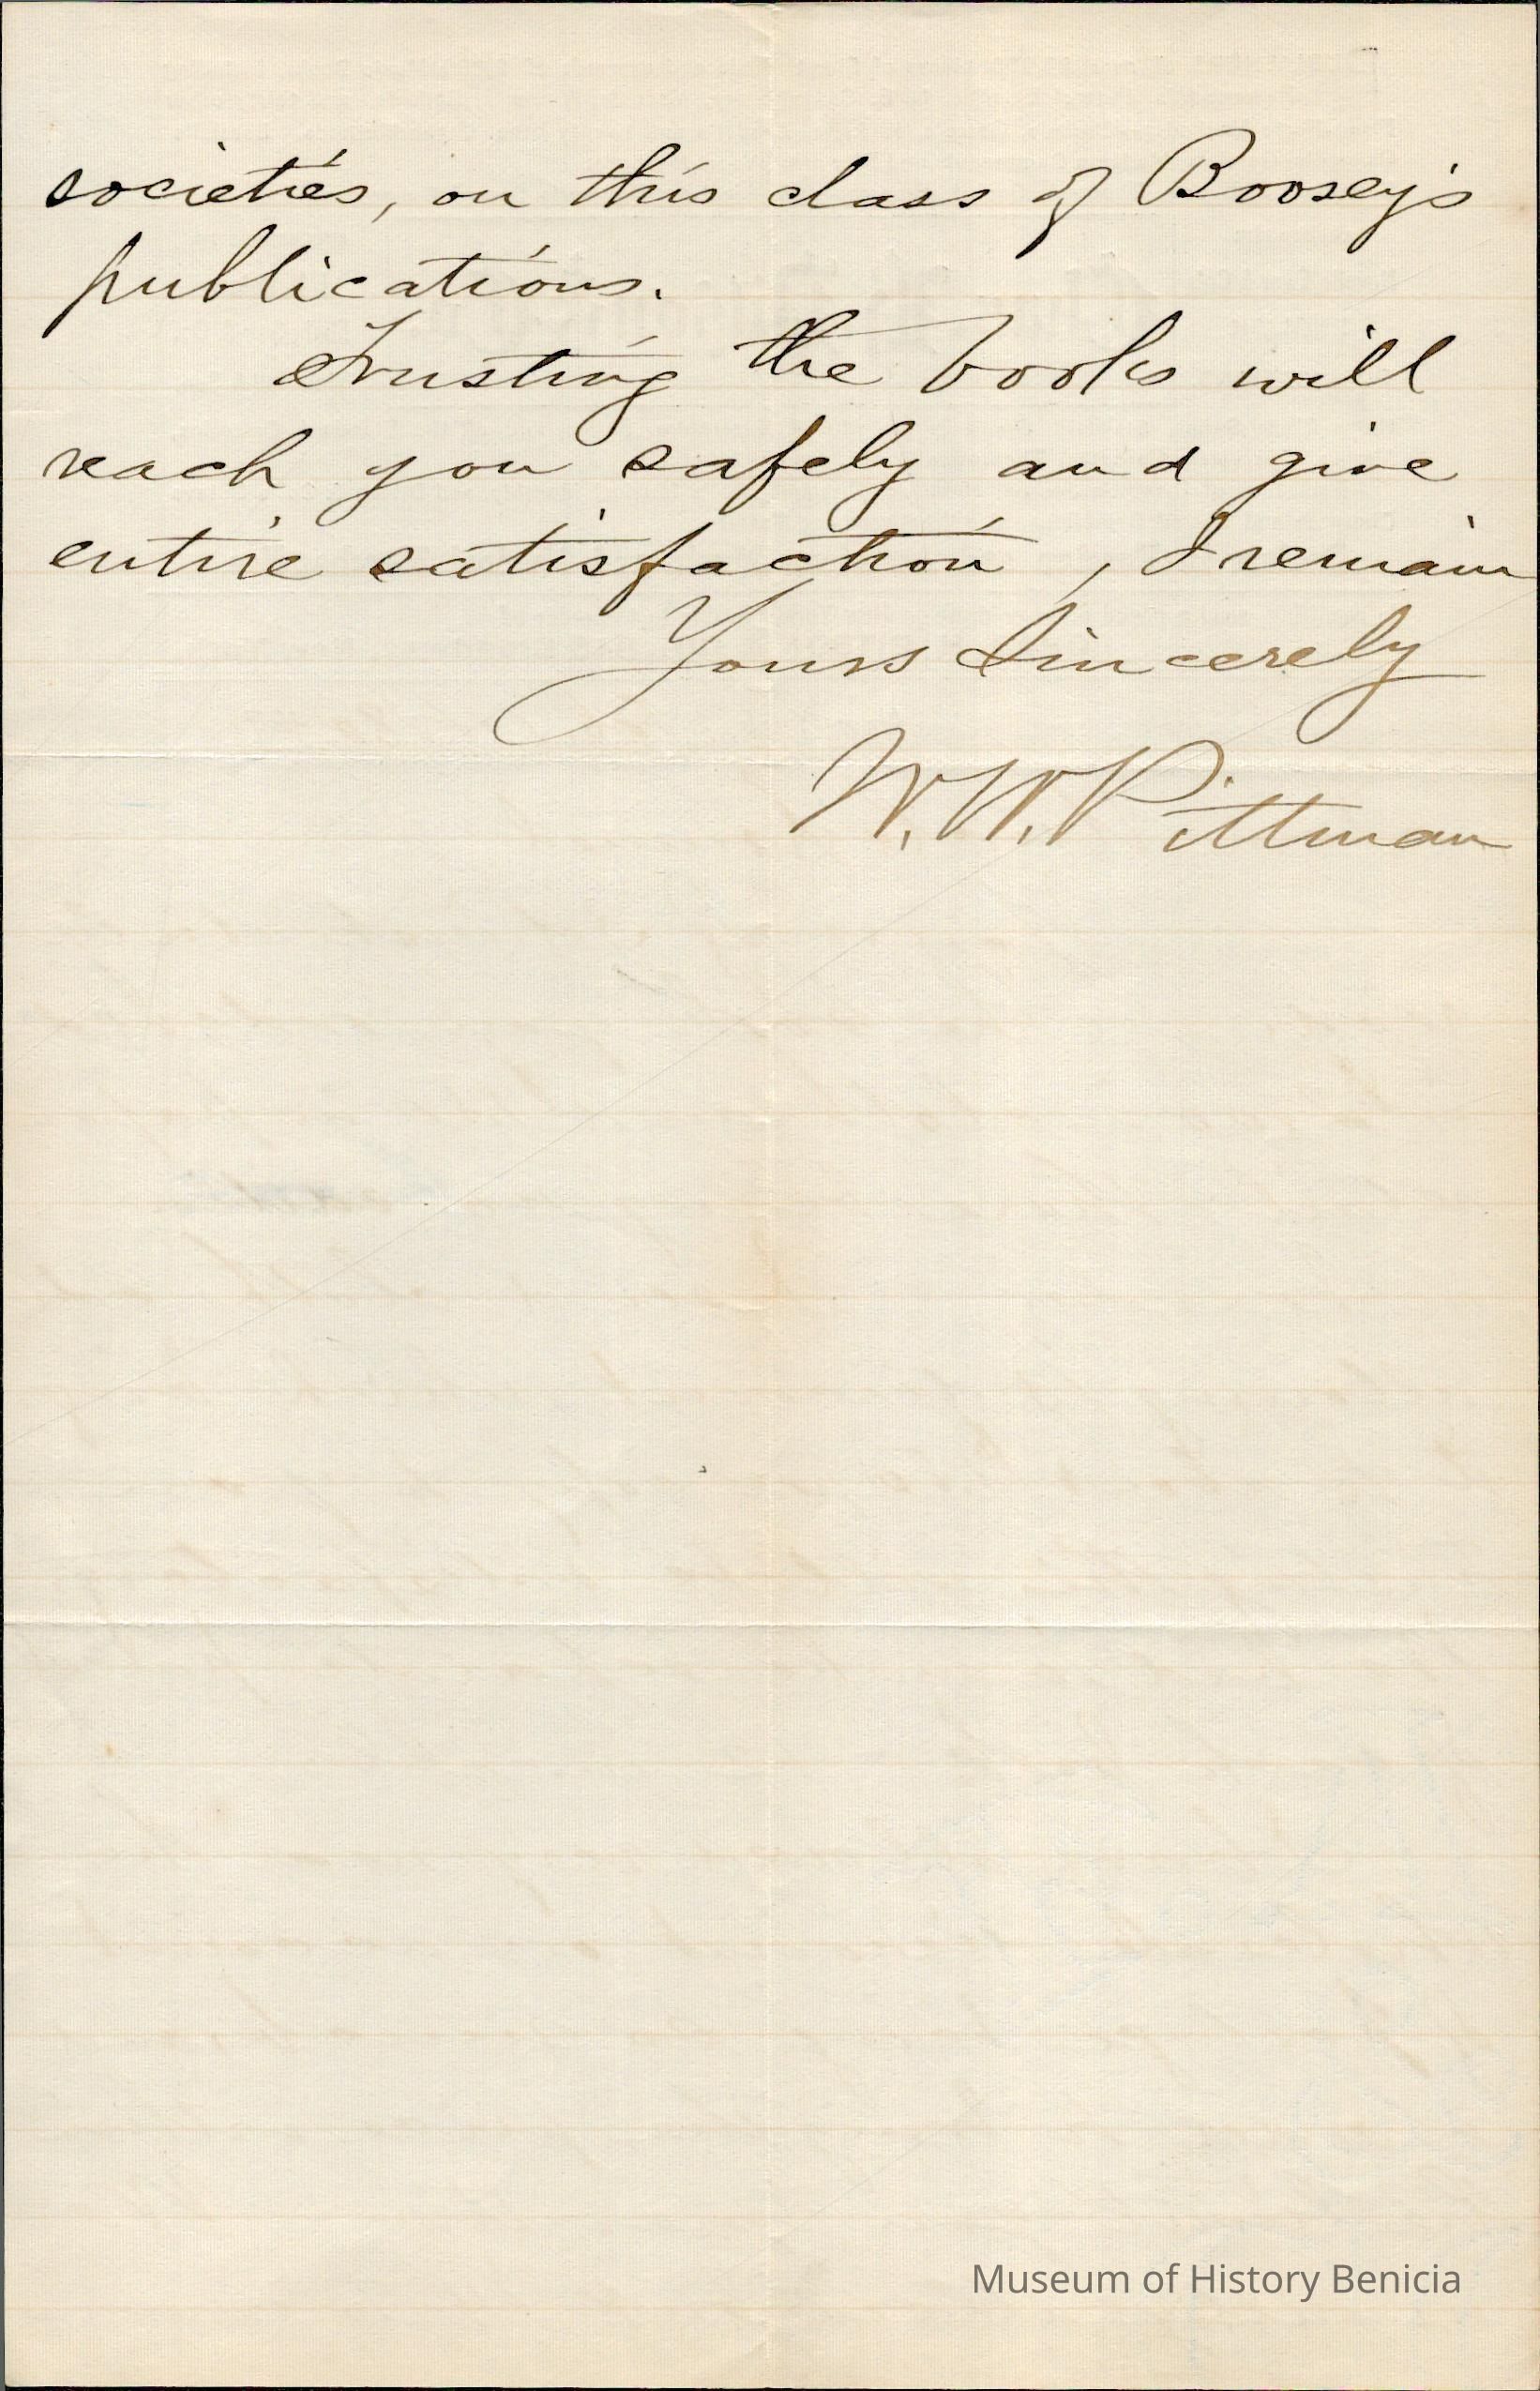 societies, on this class of Boosey's
publications.
Trusting the books will
reach you safely and give
entire satisfaction, I remain
Yours Sincerely
W. W. Pittman
Museum of History Benicia